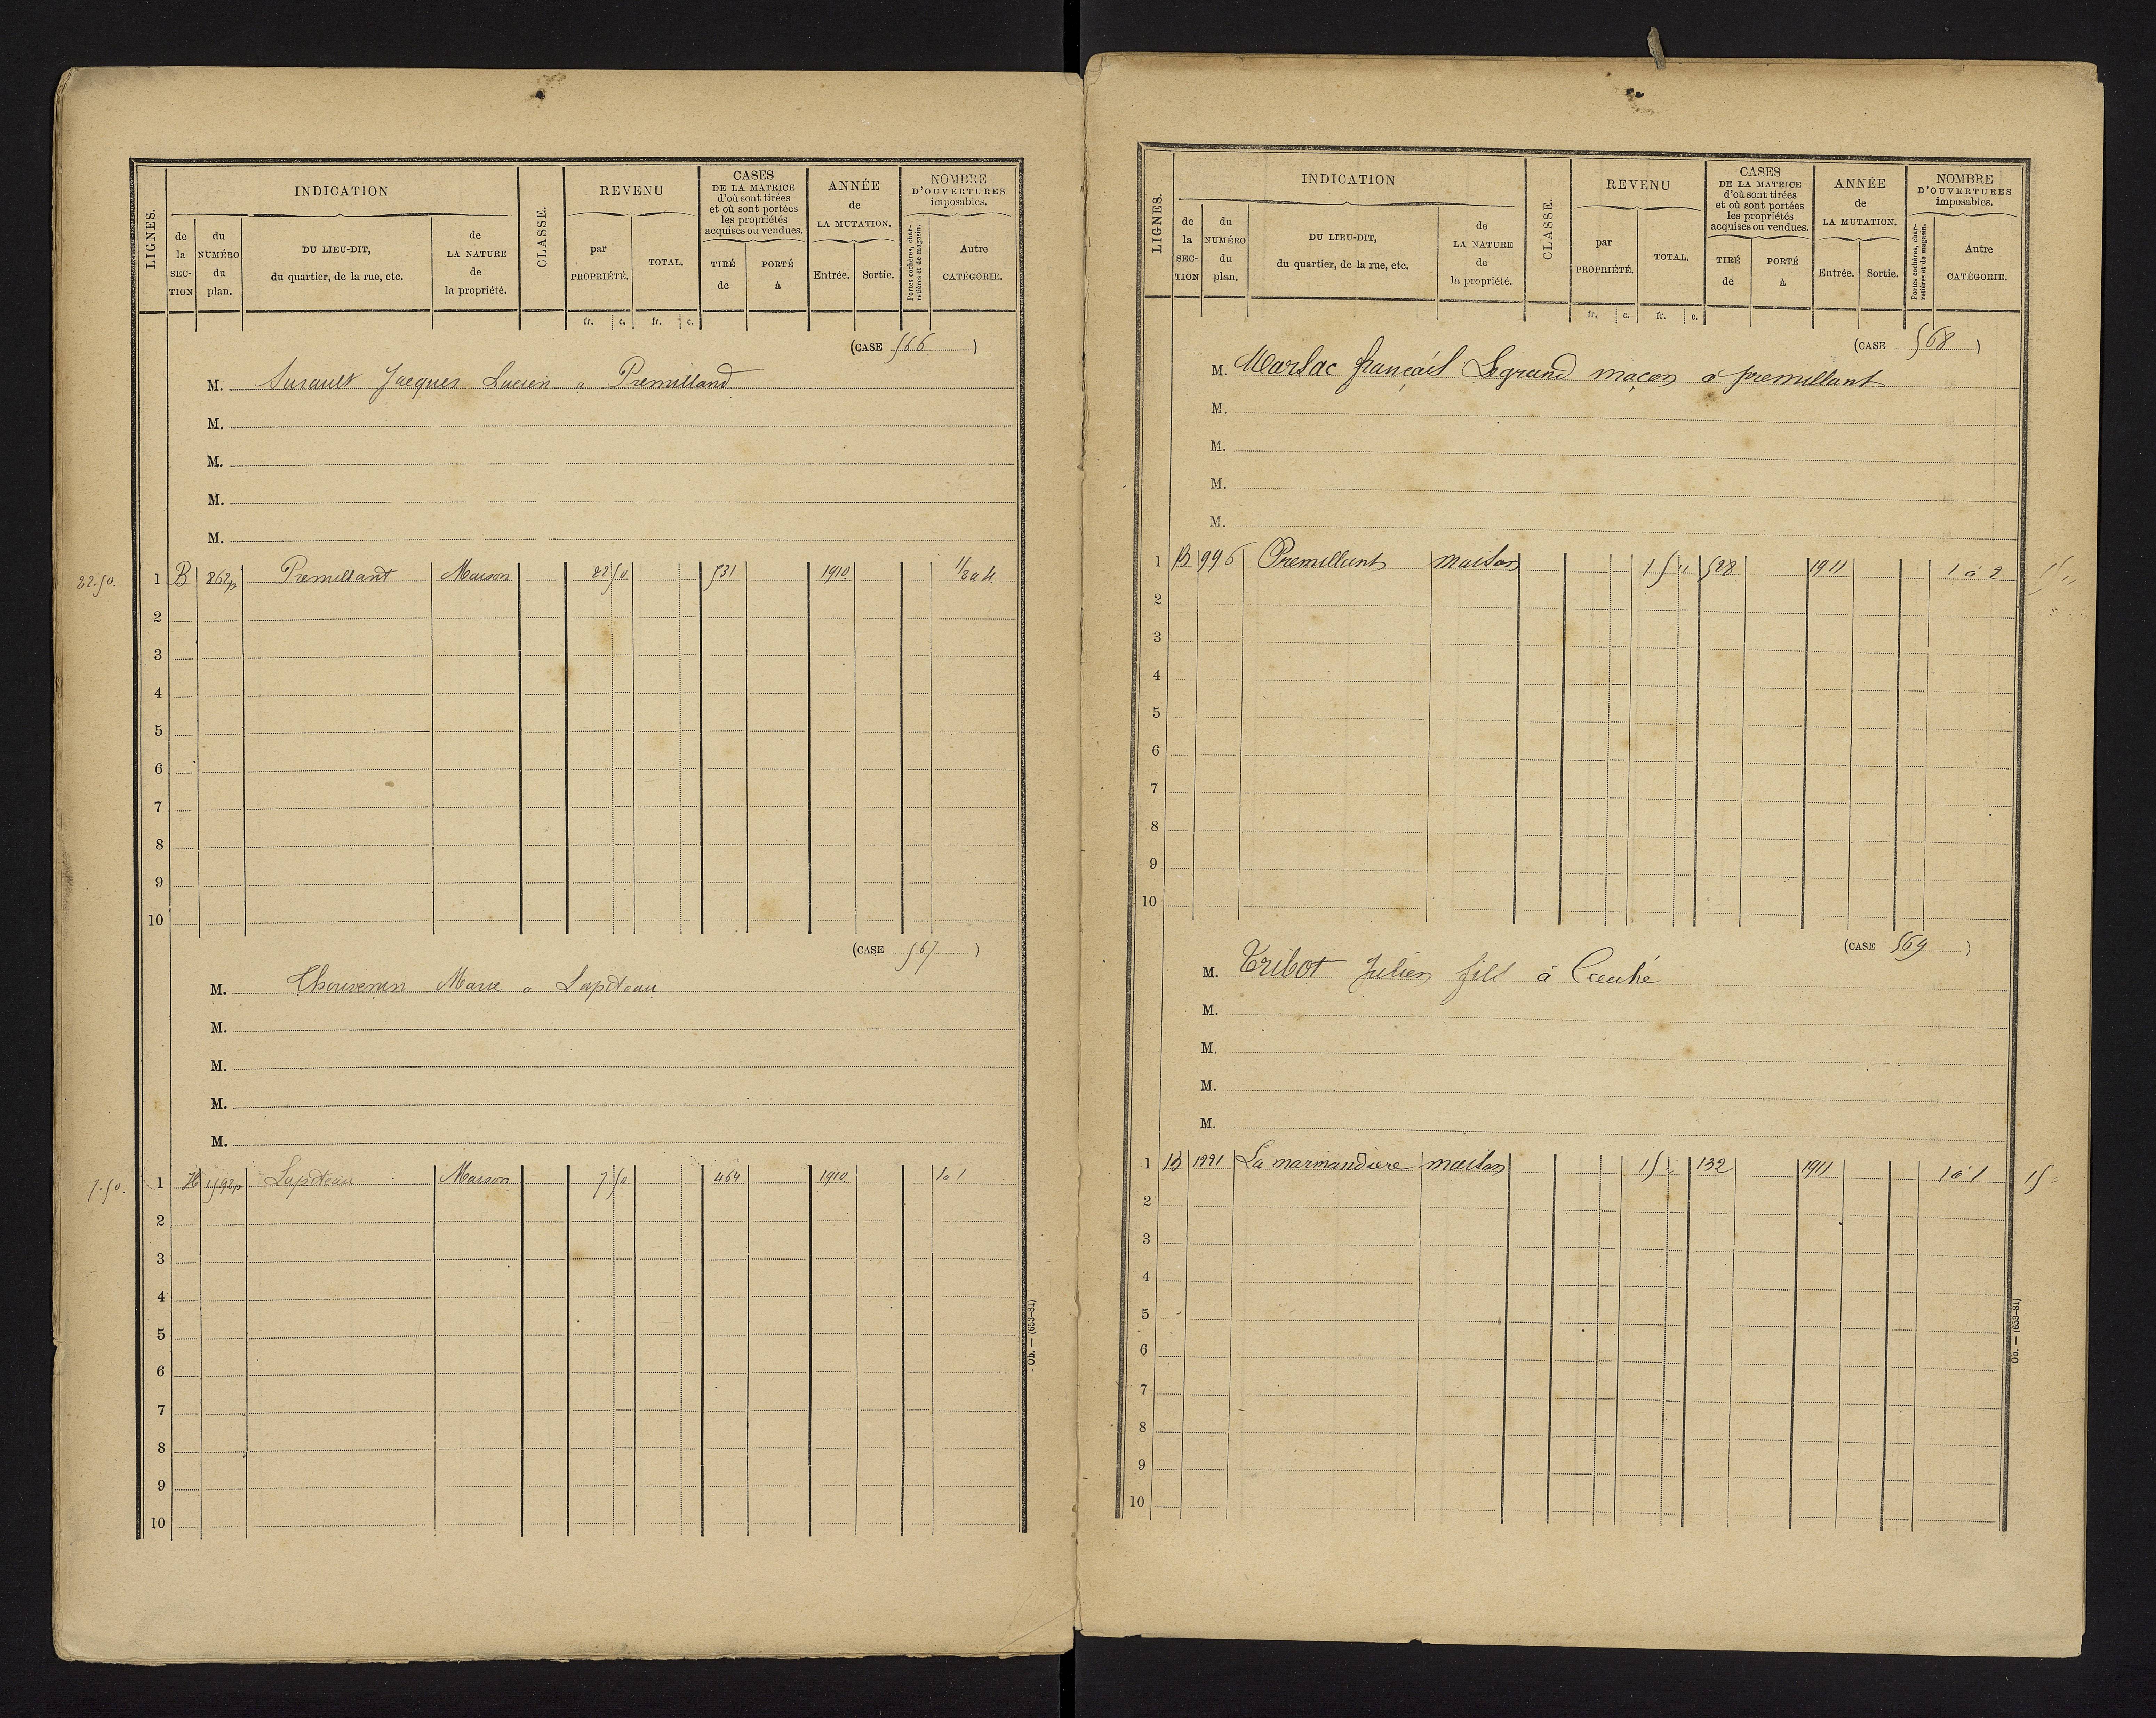 LIGNES.
INDICATION
de la SECTION
du NUMÉRO du plan.
DU LIEU-DIT, du quartier, de la rue, etc.
de LA NATURE de la propriété.
CLASSE.
REVENU
par PROPRIÉTÉ.
TOTAL.
CASES DE LA MATRICE d'où sont tirées et où sont portées les propriétés acquises ou vendues.
TIRÉ de
PORTÉ à
ANNÉE de LA MUTATION.
Entrée.
Sortie.
NOMBRE D'OUVERTURES imposables.
Portes cochères, charretières et de magasin.
Autre CATÉGORIE.
fr. c. fr. c.
(CASE 566)
M. Surault Jacques Lucien a Premilland
M.
M.
M.
M.
22.50. 1 B 262p Premillant Maison 22 50 531 1910
2
3
4
5
6
7
8
9
10
(CASE 567)
M. Thouvenin Marie a Lapiteau
M.
M.
M.
M.
7.50. 1 H 1592p Lapiteau Maison 7 50 464 1910 1 a 1
2
3
4
5
6
7
8
9
10
Ob. — (653-81)
LIGNES.
INDICATION
de la SECTION
du NUMÉRO du plan.
DU LIEU-DIT, du quartier, de la rue, etc.
de LA NATURE de la propriété.
CLASSE.
REVENU
par PROPRIÉTÉ.
TOTAL.
CASES DE LA MATRICE d'où sont tirées et où sont portées les propriétés acquises ou vendues.
TIRÉ de
PORTÉ à
ANNÉE de LA MUTATION.
Entrée.
Sortie.
NOMBRE D'OUVERTURES imposables.
Portes cochères, charretières et de magasin.
Autre CATÉGORIE.
fr. c. fr. c.
(CASE 568)
M. Marsac français Legrand maçon à premillant
M.
M.
M.
M.
1 B 996 Premillant maison 15 " 528 1911 1 à 2 15 "
2
3
4
5
6
7
8
9
10
(CASE 569)
M. Tribot Julien fils à
M.
M.
M.
M.
1 B 1221 La marmandiere maison 15 132 1911 1 à 1 15
2
3
4
5
6
7
8
9
10
Ob. — (653-81)